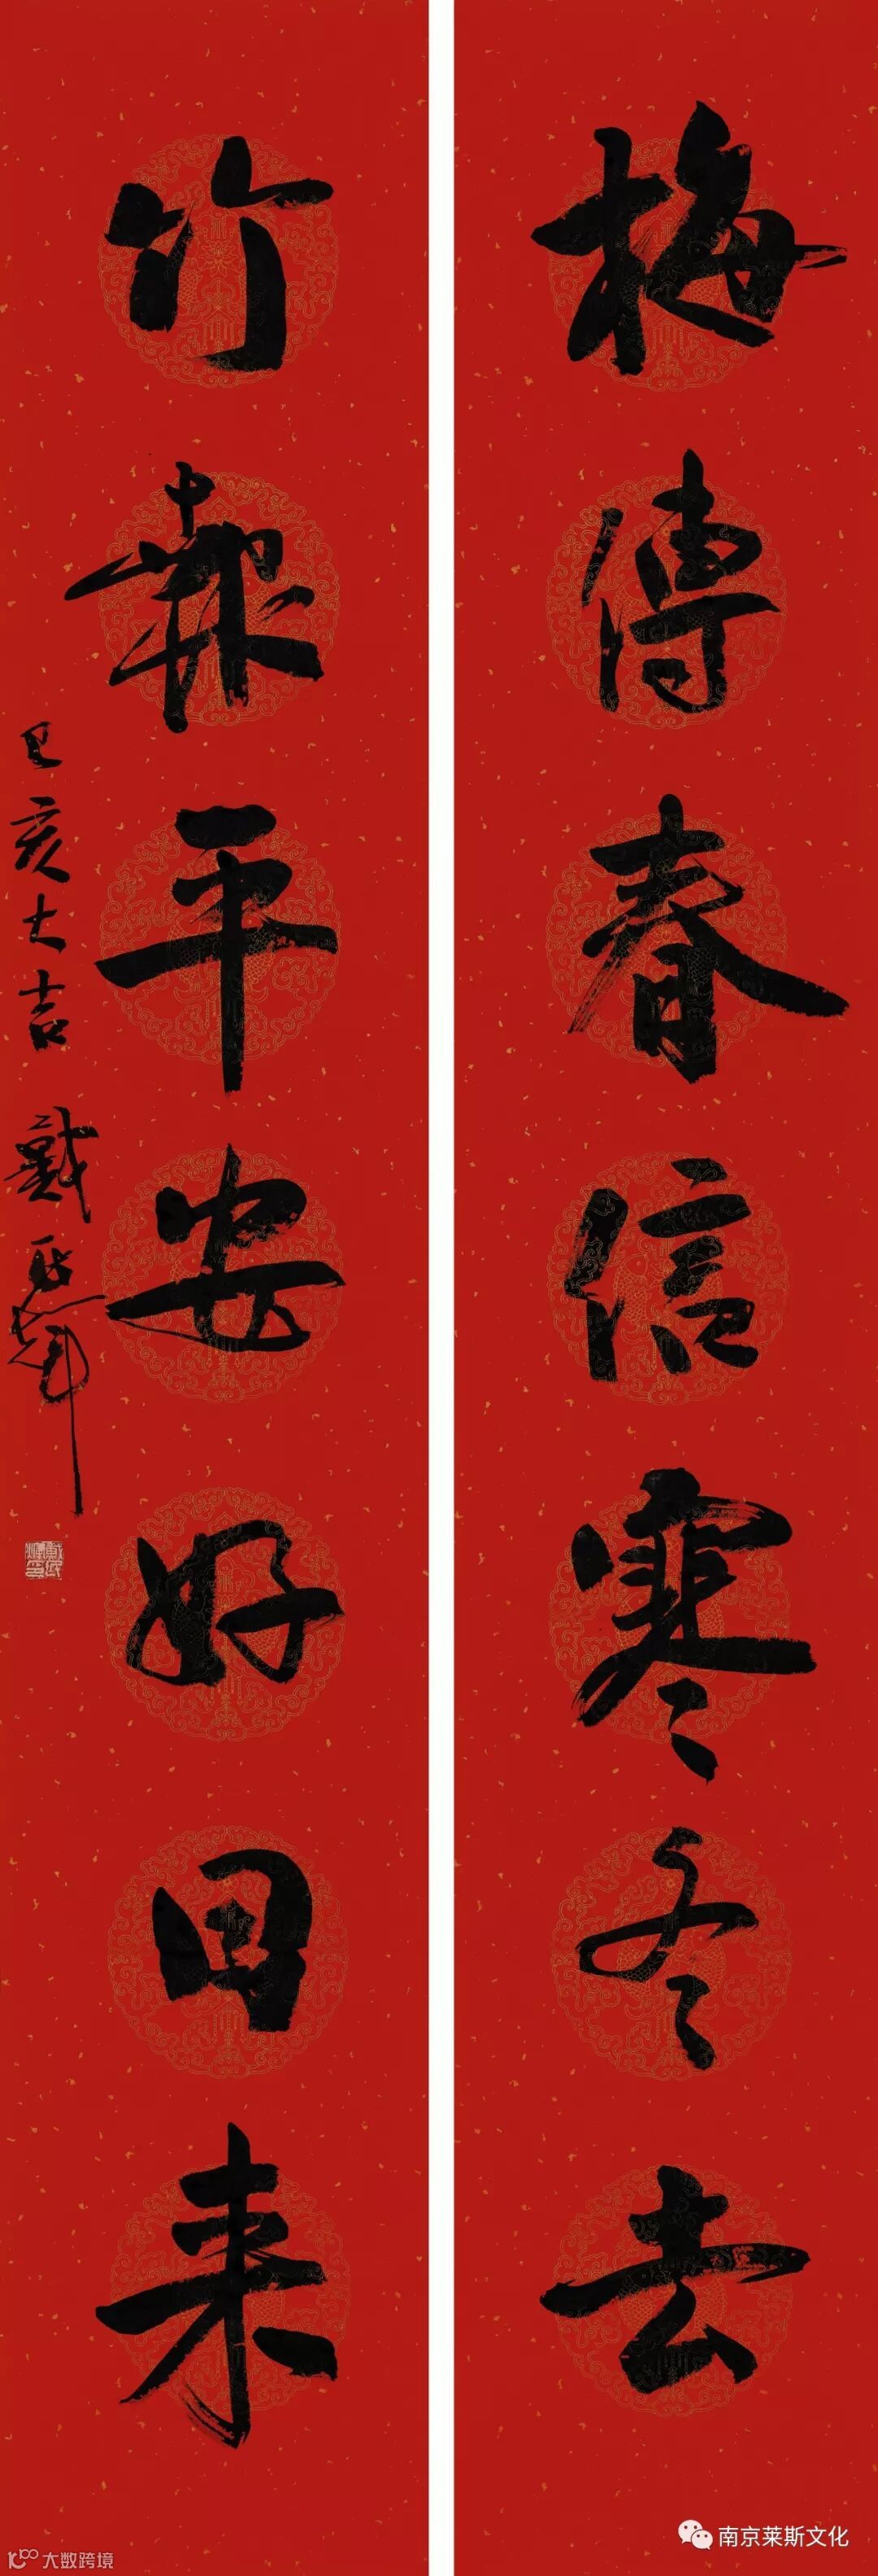 梅傳春信寒冬去
竹報平安好日来
己亥大吉 戴
南京莱斯文化
大数跨境